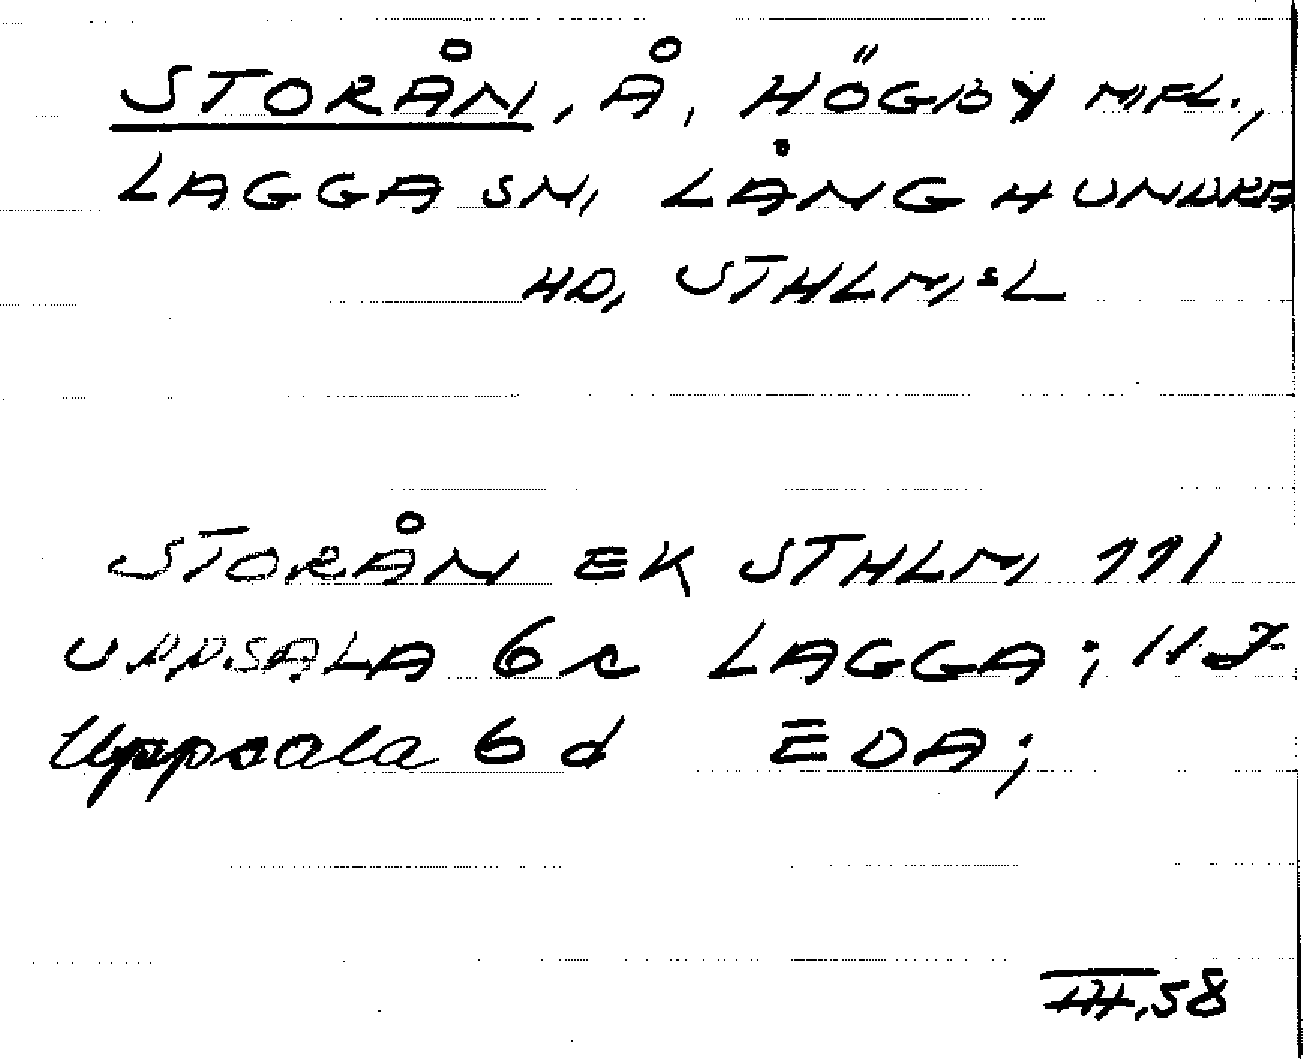 STORÅN, Å, HÖGBY M.FL.,
LAGGA SN, LÅNGHUNDRA
HD, STHLMSL
STORÅN EK STHLM 111
UPPSALA 6c LAGGA; 11 I
Uppsala 6 d EDA;
58